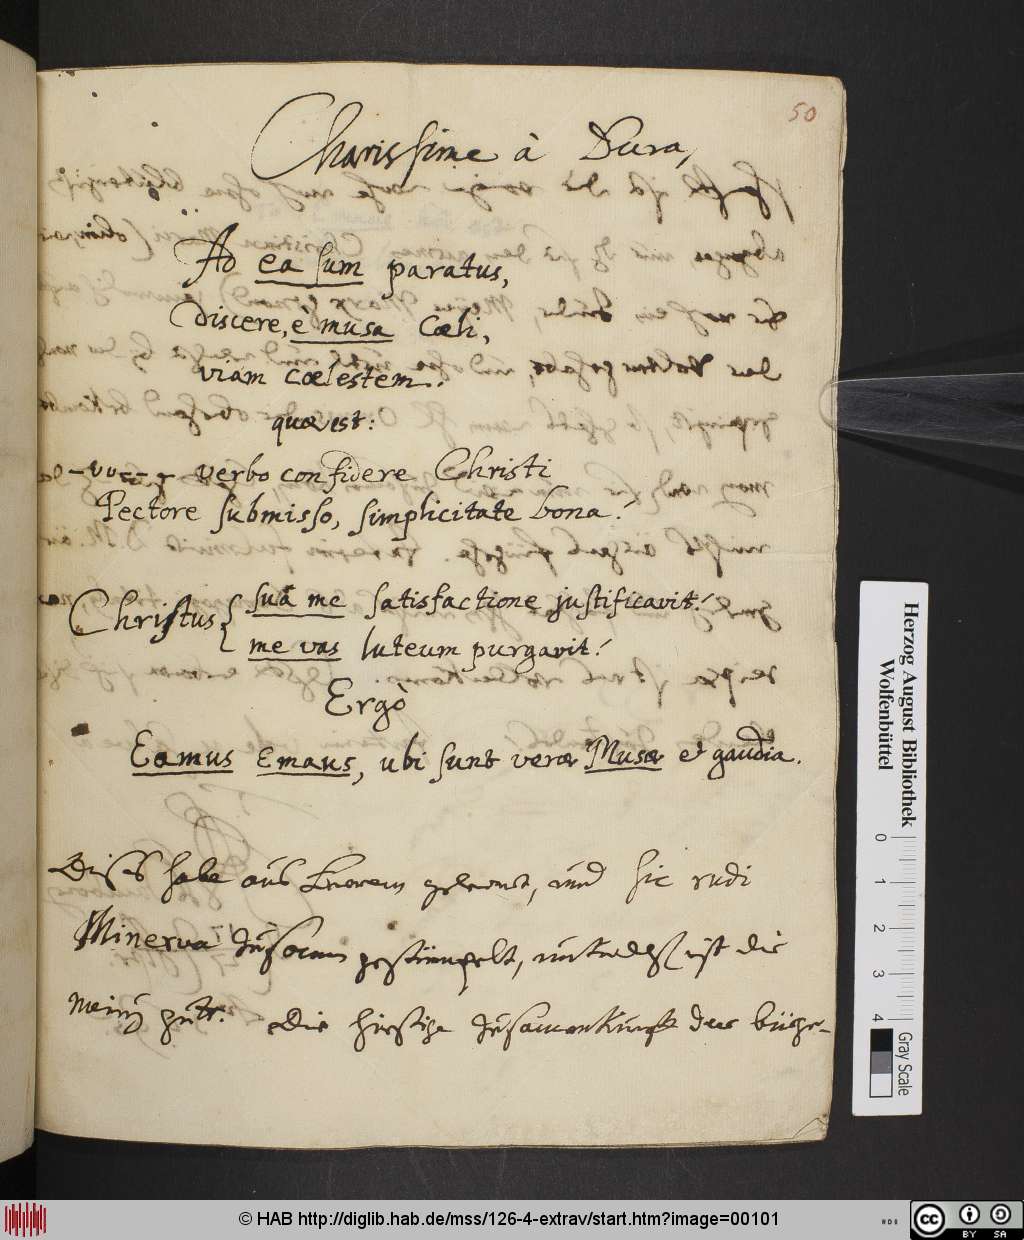 50
Charissime à Dura,
Ad ea sum paratus,
discere, è musa Cœli,
viam cœlestem!
quæ est:
verbo confidere Christi
Pectore submisso, simplicitate bona!
Christus { suâ me satisfactione justificavit!
me vas luteum purgavit!
Ergò
Eamus Emaus, ubi sunt veræ Musæ et gaudia.
Dises habe aus gelernt, und hic rudi
Minerva zusamen gestümpelt, ist die
meinung gutt. Die hiesige zusamenkunfft der bürge-
Herzog August Bibliothek
Wolfenbüttel
0 1 2 3 4
Gray Scale
© HAB http://diglib.hab.de/mss/126-4-extrav/start.htm?image=00101
cc BY SA